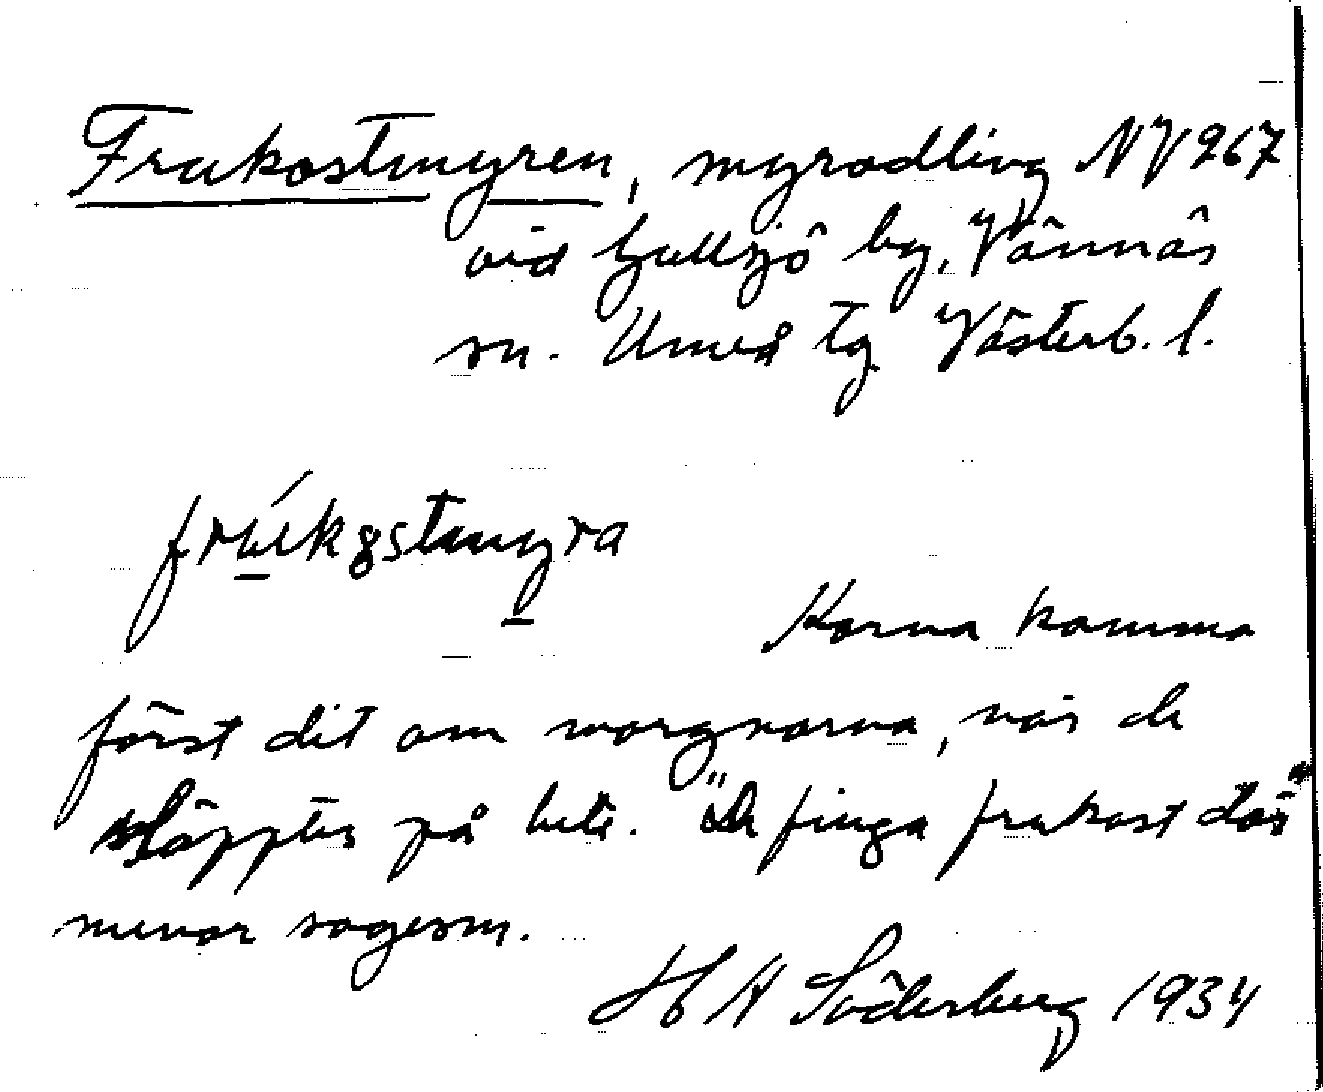 Frukostmyren, myrodling NV 267
vid Gullsjö by, Vännäs
sn. Umeå tg Västerb. l.
frúkostmyra
Korna komma
först dit om morgnarna, när de
släpptes på bete. "De finga frukost där"
menar sagesm.
H A Söderberg 1934